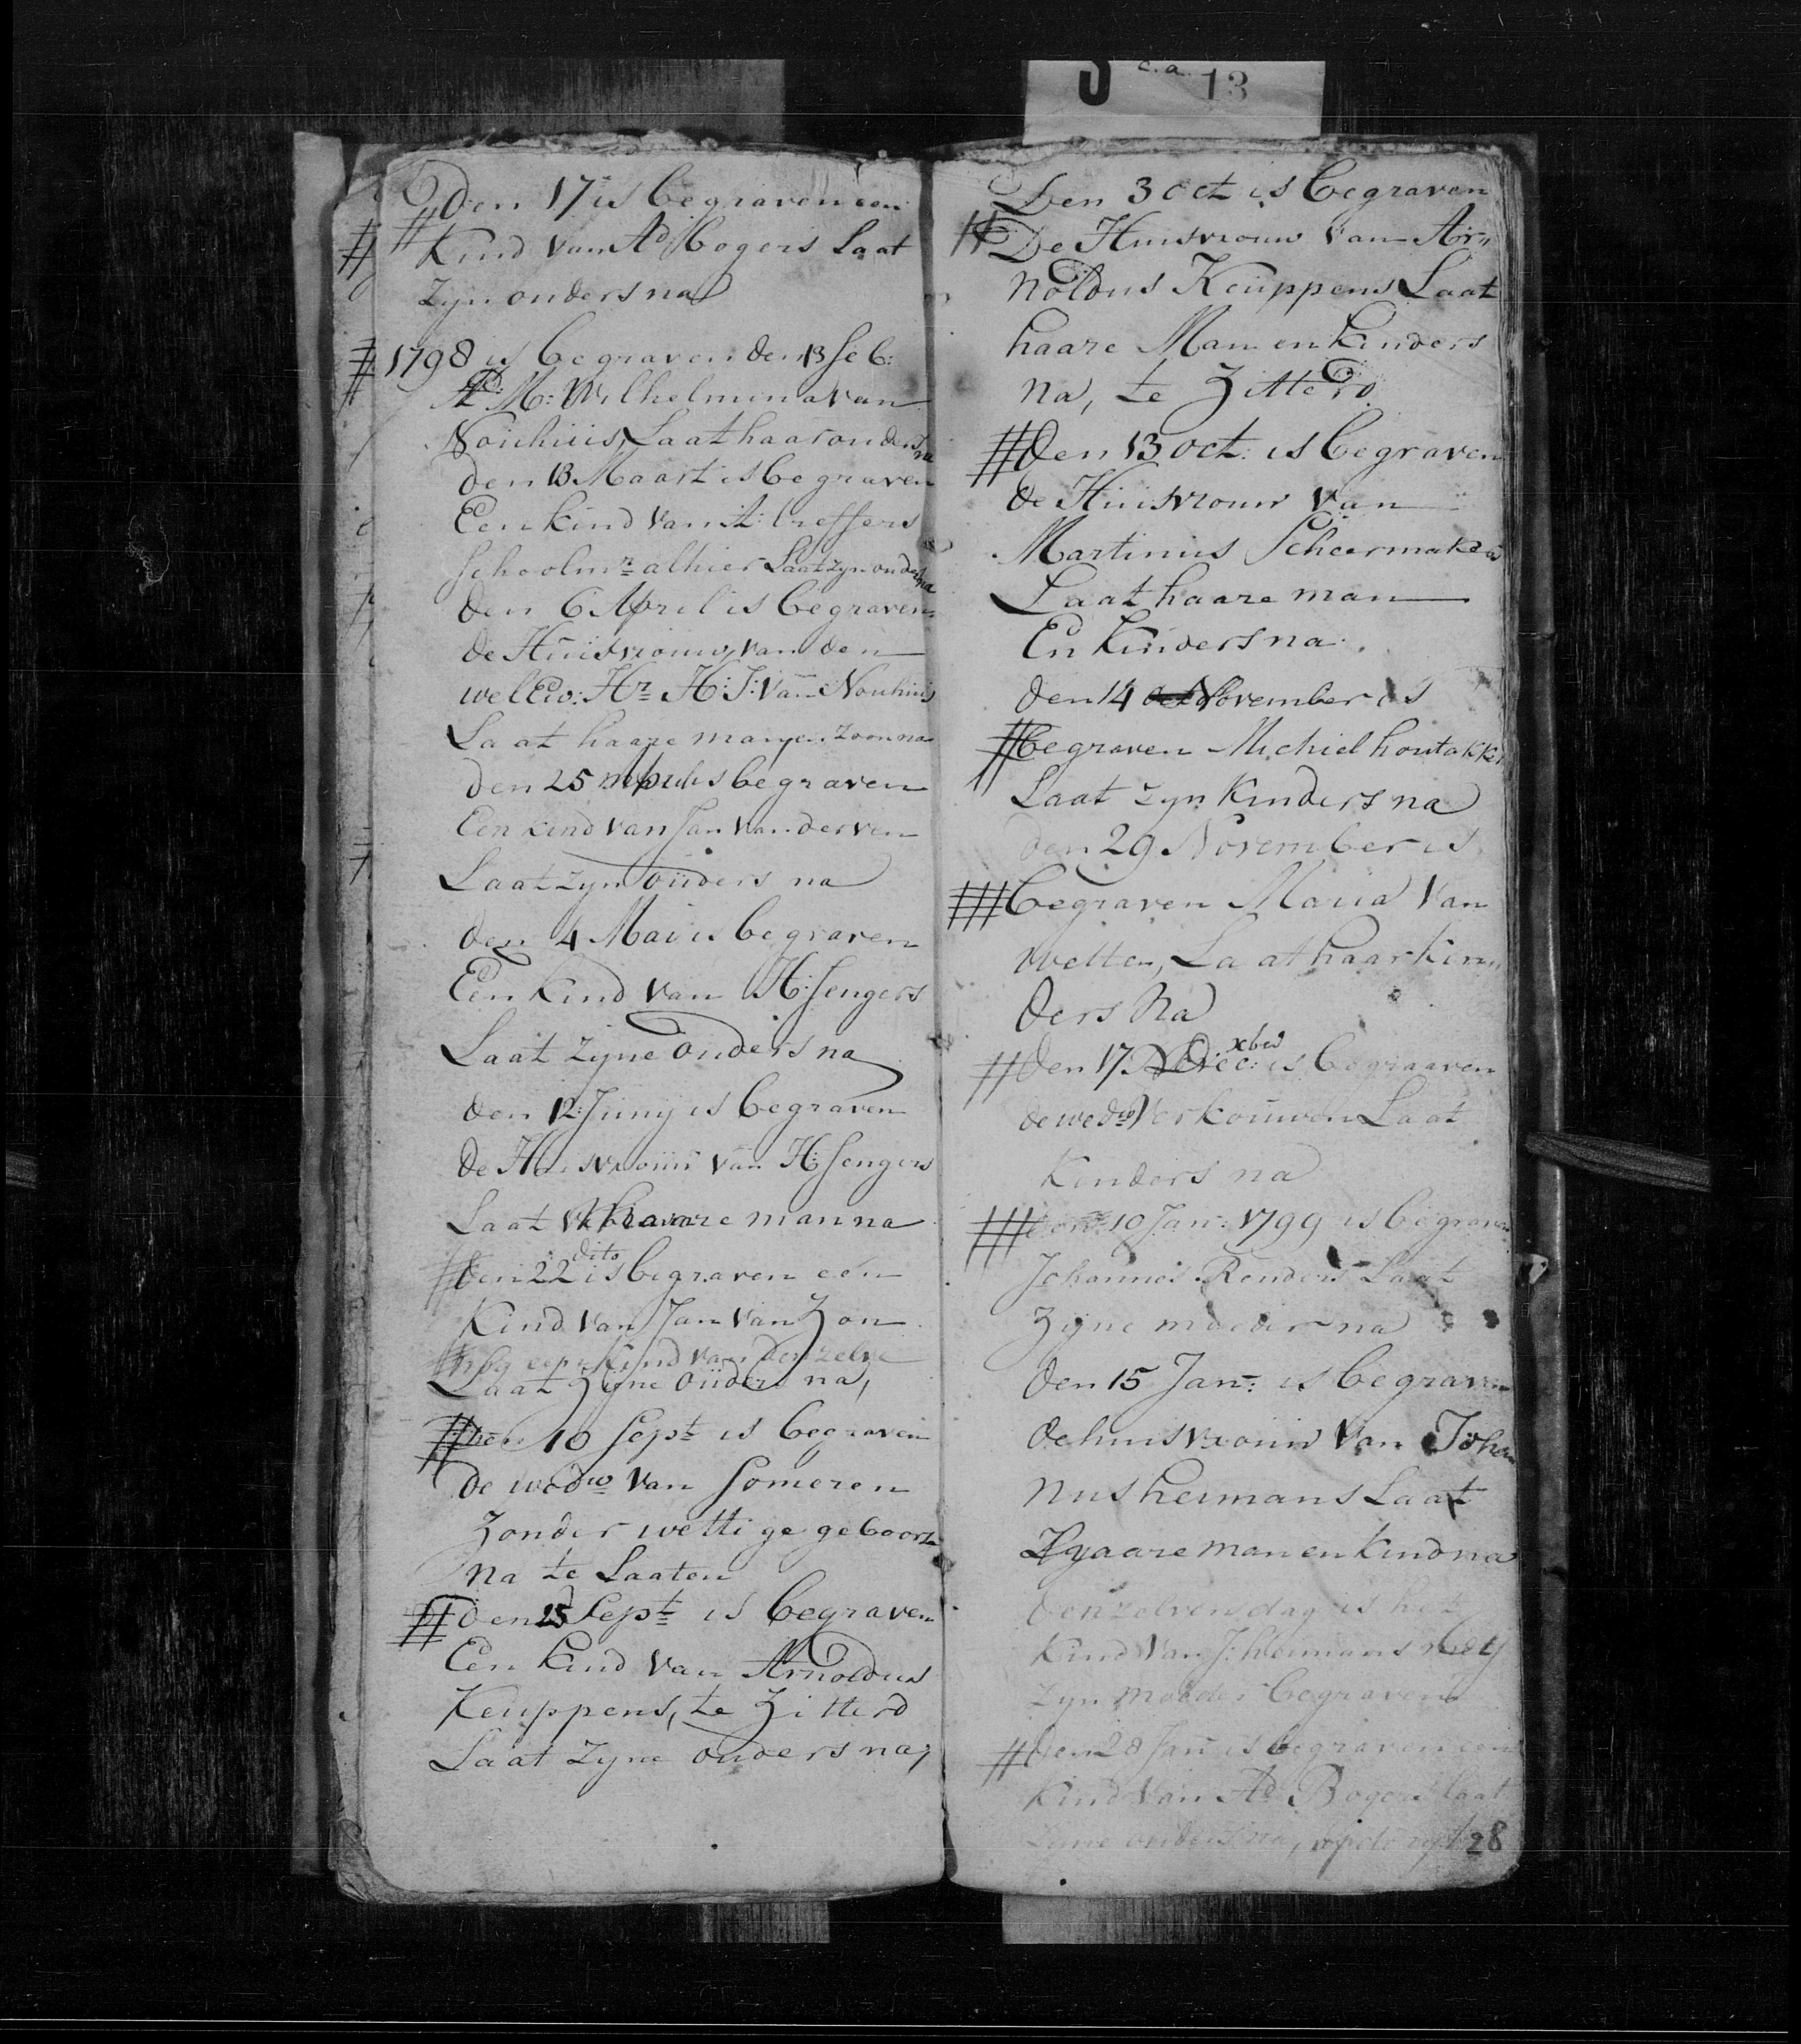 J c.a. 13
Den 17 is begraven een
Kind van Ad Bogers Laat
zyn ouders na
1798 is begraven den 13 feb:
M: Wilhelmina van
Nouhuis, Laat haar ouders na
den 13 Maart is begraven
Een kind van A: treffers
Schoolmr alhier Laat zyn ouders na
den 6 April is begraven
de Huisvrouw van den
welEw: Hr H: J: van Nouhuis
Laat haare man en zoon na
den 25 is begraven
Een kind van Jan van der ven
Laat zyn ouders na
den 4 Mai is begraven
Een kind van H: Sengers
Laat zyne ouders na
den 12 Junij is begraven
de Huisvrouw van H: Sengers
Laat haare man na
den 22 dito is begraven een
Kind van Jan van Zon
nog een kind van denzelve
Laat Zyne ouders na,
den 10 Sept is begraven
de wedw van Someren
Zonder wettige geboorte
na te Laaten
den 25 Sept is begraven
Een kind van Arnoldus
Keuppens, te Zitterd
Laat zyne ouders na,
Den 3 oct is begraven
De Huisvrouw van Ar„
noldus Keuppens Laat
haare Man en kinders
na, te Zitterd
den 13 oct: is begraven
de Huisvrouw van
Martinus Scheermakers
Laat haare man
En kinders na.
den 14 oct November is
begraven Michiel houtakker
Laat zyn kinders na
den 29 November is
begraven Maria van
Welten, Laat haar kin„
ders Na
den 17 Dec: xber is begraaven
de wedw Verkouwen Laat
Kinders na
den 10 Jan: 1799 is begraven
Johannes Renders Laat
Zyne moeder na
den 15 Jan: is begraven
de huisvrouw van Johan
nus heimans Laat
Haare man en kind na
denzelven dag is het
Kind van J: heimans bey
zyn moeder begraven
den 28 Jan is begraven een
kind van Ad Bogers laat
Zyne ouders na,
28